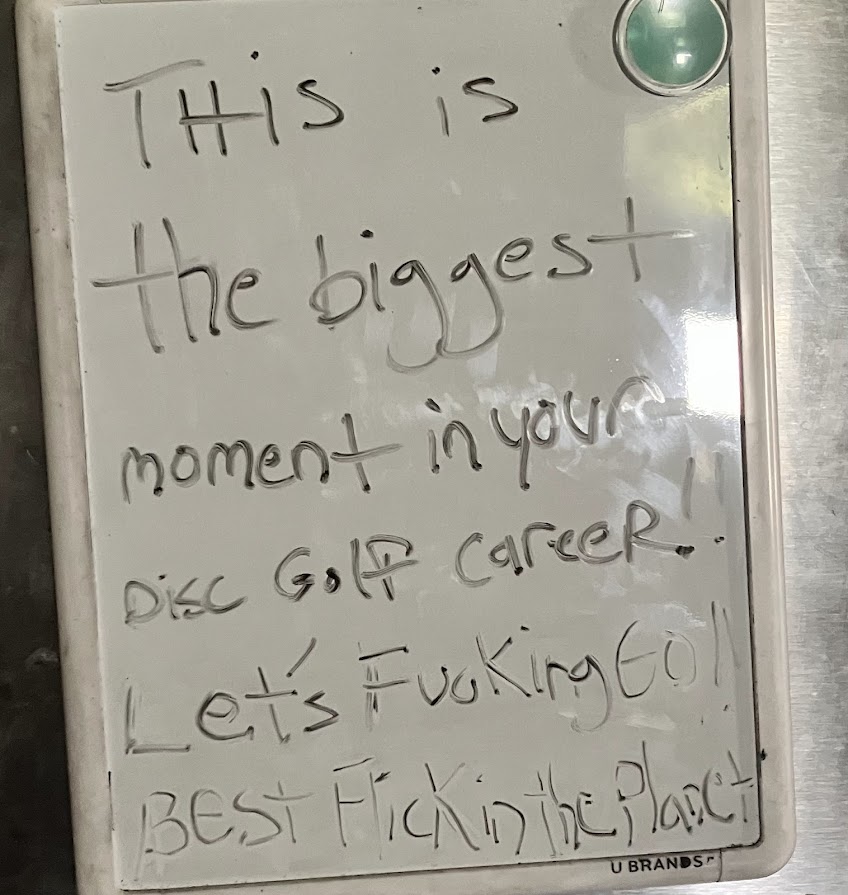 THis is
the biggest
moment in your
Disc Golf Career!!
Let's Fucking GO!!
BEST Flick in the Planet
U BRANDS